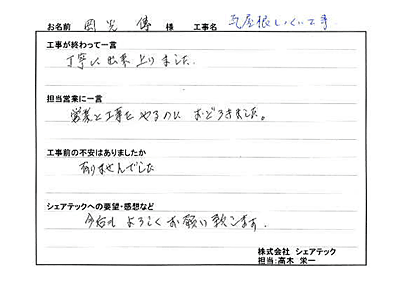 お名前 岡 光 様 工事名 瓦屋根しっくい工事
工事が終わって一言
丁寧に出来上りました。
担当営業に一言
営業と工事をやるのに おどろきました。
工事前の不安はありましたか
ありませんでした
シェアテックへの要望・感想など
今后も よろしくお願い致します。
株式会社 シェアテック
担当:高木 栄一